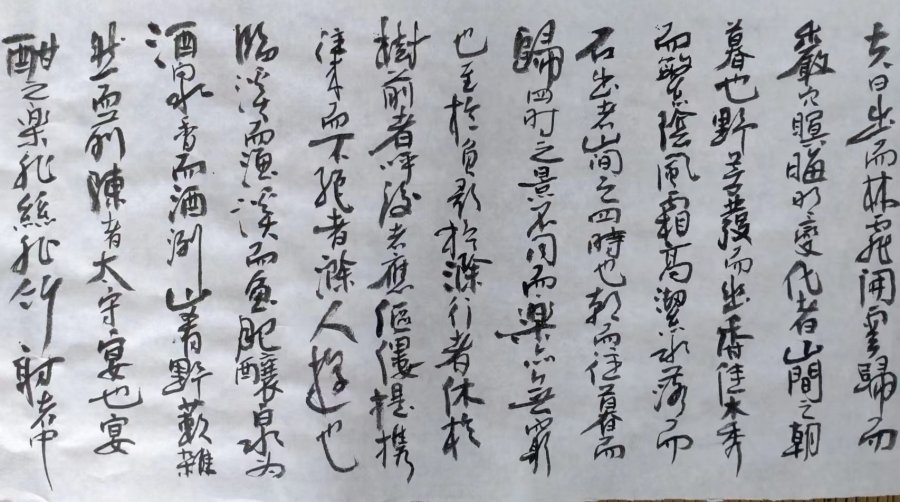 夫日出而林霏開雲歸而
巖穴暝晦明變化者山間之朝
暮也野芳發而幽香佳木秀
而繁陰風霜高潔水落而
石出者山間之四時也朝而往暮而
歸四時之景不同而樂亦無窮
也至於負歌於滁行者休於
樹前者呼後者應傴僂提携
往來而不絕者滁人遊也
臨溪而漁溪而魚肥釀泉為
酒泉香而酒洌山肴野蔌雜
然而前陳者太守宴也宴
酣之樂非絲非竹射者中